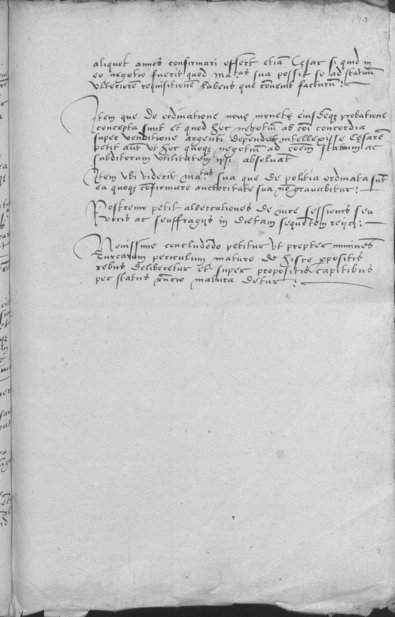 aliquot annos confirmari offert etiã Cesar si quid in
eo negotio fuerit quod Ma.tas sua possit se ad statuũ
ulteriorem requisitionẽ habens que conveniat facturum :
Item que de ordinatione nove monetę eiusdemq; probatione
concepta sunt et quod hoc negotiũ ab cõi concordia
super venditione argenti dependet intellexisse Cesarẽ
petit aũt ut hoc quoq; negotiũ ad cõem statuum ac
subditorum utilitatem absoluat
Item ubi viderit Ma.tas sua que de politia ordinata sũt
ea quoq; cõfirmare auctoritate sua nõ gravabitur :
Postremo petit altercationes de iure sessionis seu
ac seuffragijs in dietam sequẽtem reijci :
Novissime concludẽdo petitur ut propter imminẽs
Turcarum periculum mature de hisce ppositis
rebus deliberetur et super propositis capitibus
per status mature detur :